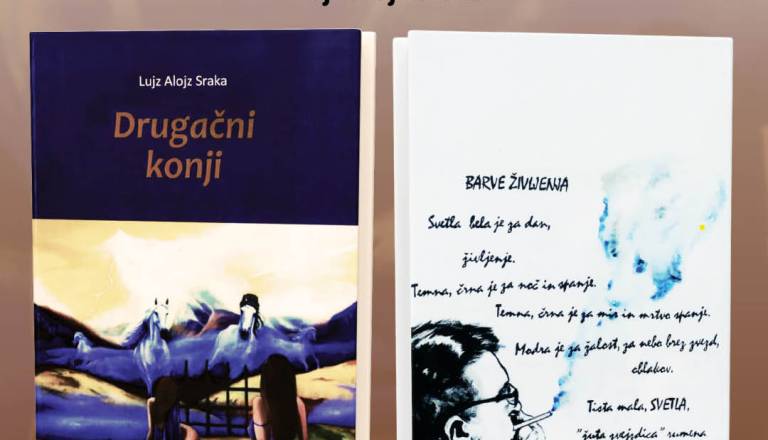 Lujz Alojz Sraka
Drugačni
konji
BARVE ŽIVLJENJA
Svetla bela je za dan,
življenje.
Temna, črna je za noč in spanje.
Temna, črna je za mir in mrtvo spanje.
Modra je za žalost, za nebo brez zvezd,
oblakov.
Tista mala, SVETLA,
"žuta zvejzdica" rumena